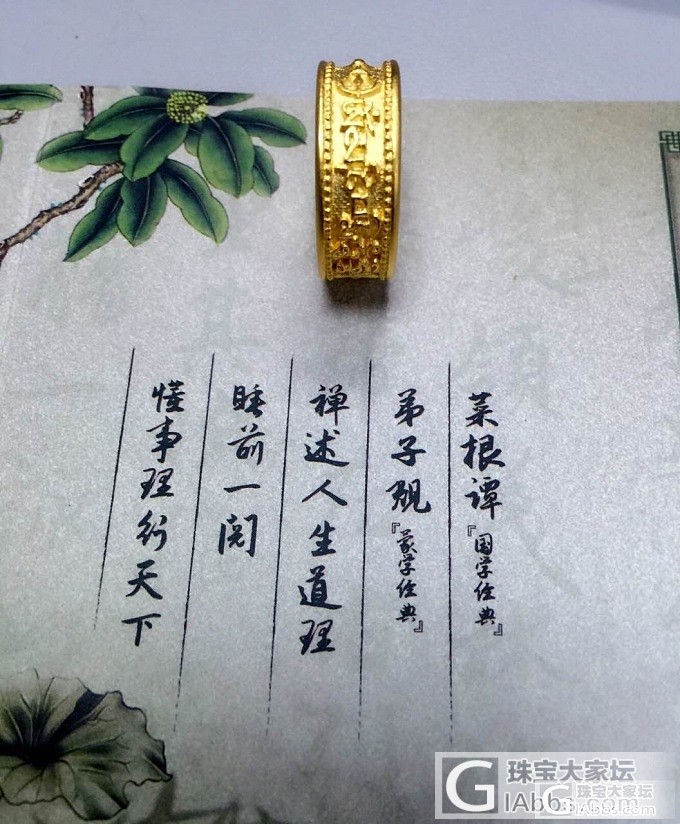 菜根谭『国学经典』
弟子规『蒙学经典』
禅述人生道理
睡前一阅
懂事理行天下
珠宝大家坛
GIAbbs.com
珠宝大家坛
GIAbbs.com